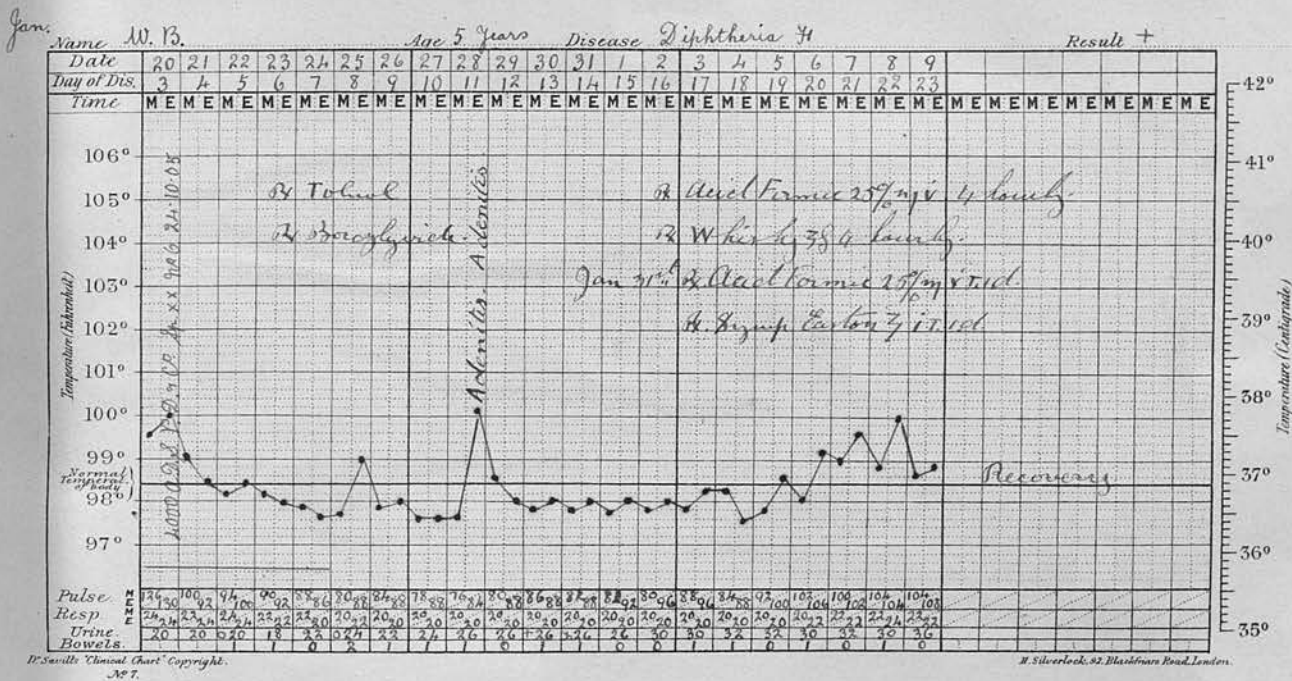 Jan.
Name W. B. Age 5 Years Disease Diphtheria Result +
Date 20 21 22 23 24 25 26 27 28 29 30 31 1 2 3 4 5 6 7 8 9
Day of Dis. 3 4 5 6 7 8 9 10 11 12 13 14 15 16 17 18 19 20 21 22 23
Time M E M E M E M E M E M E M E M E M E M E M E M E M E M E M E M E M E M E M E M E M E M E M E M E M E M E M E M E
42°
106°
41°
105°
104°
40°
103°
102°
39°
101°
100°
38°
99°
37°
98°
97°
36°
35°
Temperature (Fahrenheit)
Temperature (Centigrade)
Normal Temperat. of body
24.10.05
Adenitis. Adenitis
℞ Acid Formic 25% 4 hourly.
℞ Whisky 4 hourly.
Jan 31st ℞ Acid Formic 25% T.i.d.
℞ Syrup Easton i T.i.d.
Recovery
Pulse M E 126 130 100 92 94 100 90 92 88 86 80 88 84 88 78 88 76 84 80 88 86 88 88 92 80 96 88 96 84 88 92 100 102 106 100 102 104 104 104 108
Resp M E 24 24 22 24 24 24 22 22 22 20 20 22 20 20 20 20 20 20 20 20 20 20 20 20 20 20 20 20 20 20 20 20 20 20 20 22 22 22 22 24 22 22
Urine 20 20 20 18 22 24 22 24 26 26 26 26 26 30 30 32 32 30 32 30 36
Bowels. 1 1 0 2 1 1 1 1 1 1 1 0 0 1 0 0 1 0 1 0
Dr. Savill's "Clinical Chart" Copyright.
Nº 7.
H. Silverlock, 92, Blackfriars Road, London.